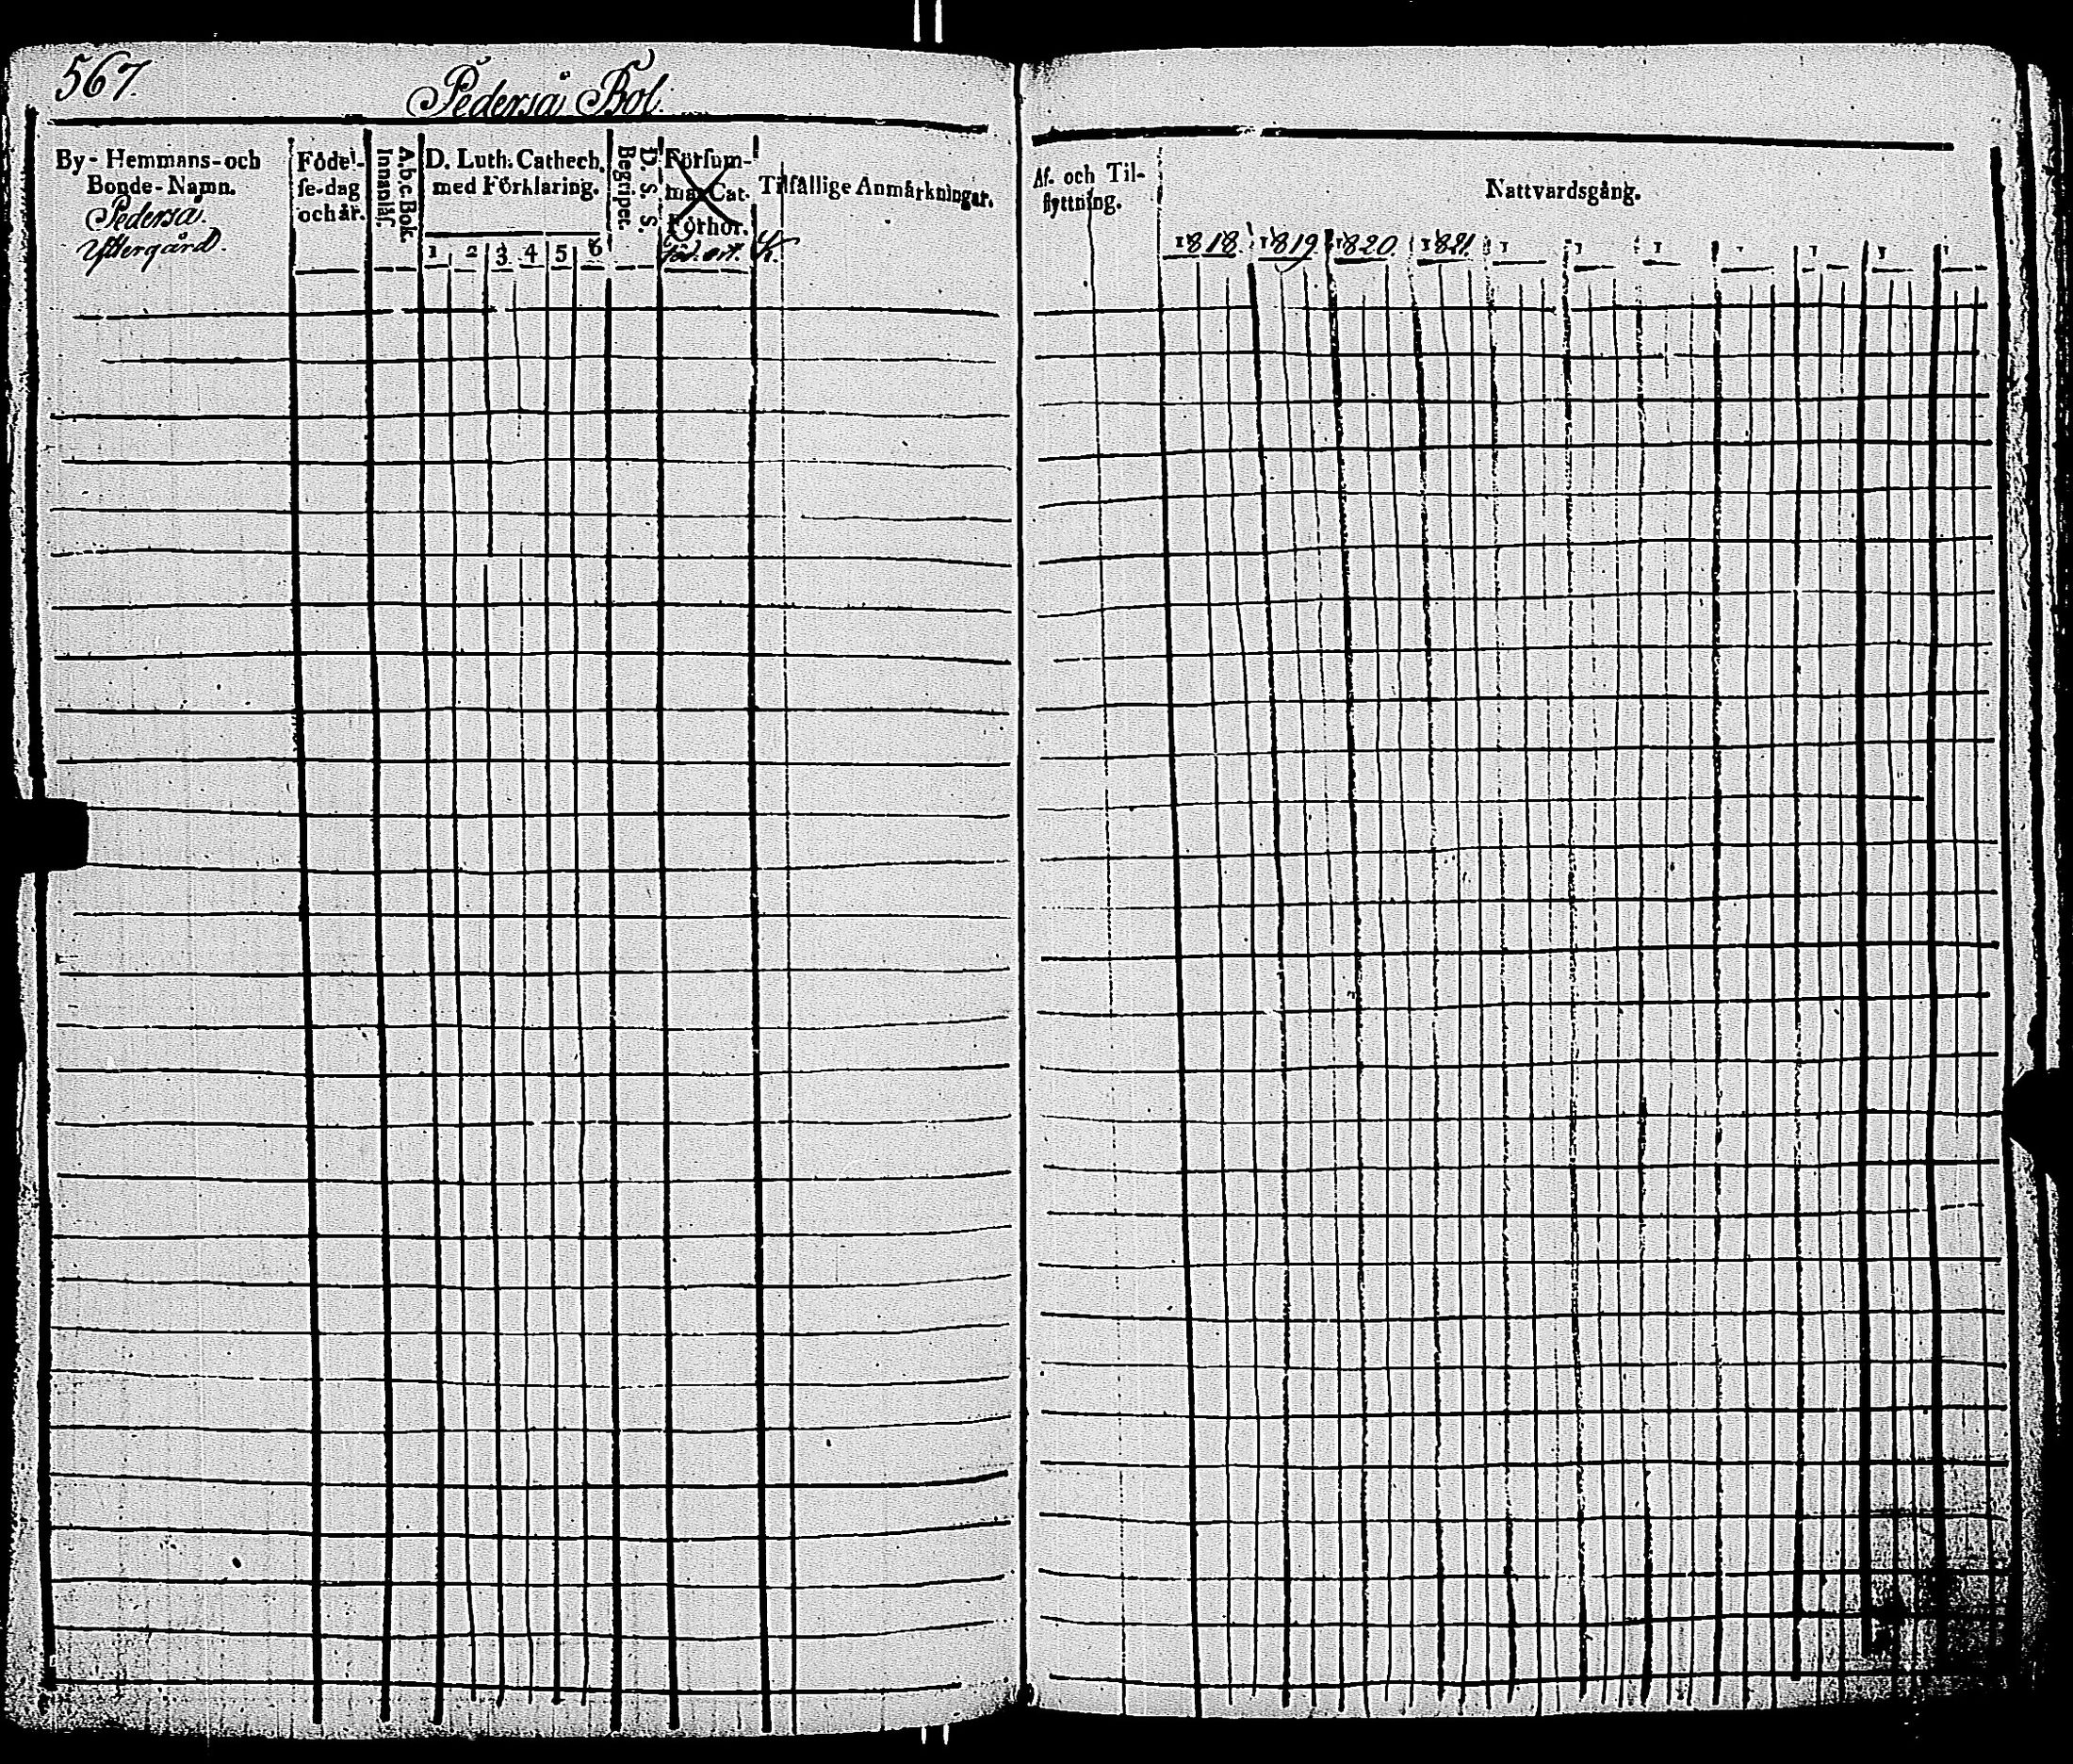 567.
Pederså Bol.
By- Hemmans- och
Bonde-Namn.
Pederså
Yttergård.
Födel-
se-dag
och år.
A.b.c. Bok.
Innanläs.
D. Luth. Cathech.
med Förklaring.
1 2 3 4 5 6
D. S. S.
Begripet.
Försum-
ma Cat-
Förhör.
Föd. ort.
K.
Tilfällige Anmärkningar.
Af- och Til-
flyttning.
Nattvardsgång.
1818. 1819. 1820. 1821. 1 1 1 1 1 1 1